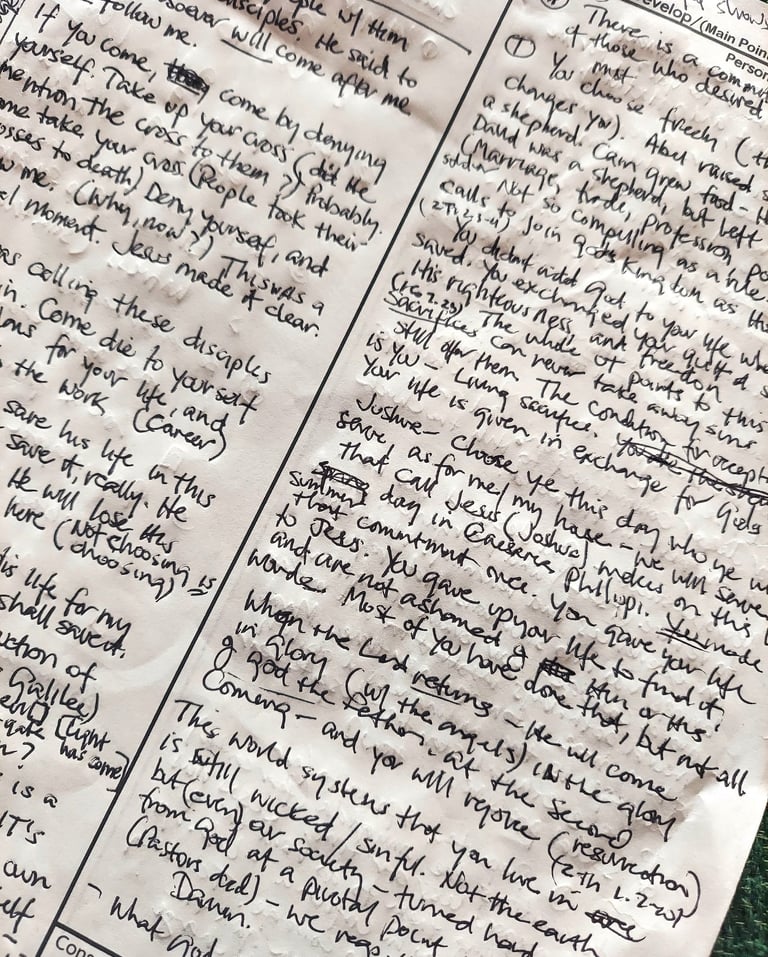 ple w/ them
disciples. He said to
soever will come after me
follow me.
If you come, come by denying
yourself. Take up your cross (did He
mention the cross to them?) Probably.
me take your cross. (People took their
osses to death) Deny yourself, and
w me. (Why, now?) This was a
l moment. Jesus made it clear.
as calling these disciples
in. Come die to yourself
lans for your life, and
the work (Career)
save his life in this
save it, really. He
He will lose His
here (Not choosing is
choosing)
is life for my
shall save it.
uction of
Galilee)
Light
gate has come)
n?
e is a
IT's
own
elf
Cons
velop/(Main Poin
Person
There is a commi
of those who desired
① You must
choose freely (th
changes you). Abel raised s
a shepherd. Cain grew food - H
David was a shepherd, but left
(Marriage, trade, profession Po
soldier Not so compelling as a rule.
calls to join God's Kingdom as th
You didn't add God to your life whe
saved. You exchanged your guilt & s
His righteousness, and freedom
The whole OT points to this
Sacrifices can never take away sins
still offer them. The condition for accept
is You - Living sacrifice.
Your life is given in exchange for God's
Joshua - Choose ye this day who ye w
serve as for me/my house - we will serve
that call Jesus (Joshua) makes on this
summers day in Caesarea Philippi.
that commitment once. You gave your life
to Jesus. You gave up your life to find it
and are not ashamed of Him or His
words. Most of you have done that, but not all
When the Lord returns - He will come
in Glory (w/ the angels) in the glory
of God the Father, at the Second
Coming - and you will rejoice (resurrection)
This world systems that you live in
is still wicked/sinful. Not the earth
but (even) our society - turned hard
from God at a pivotal point
(Pastors died) - we reap
Darwin.
- What God